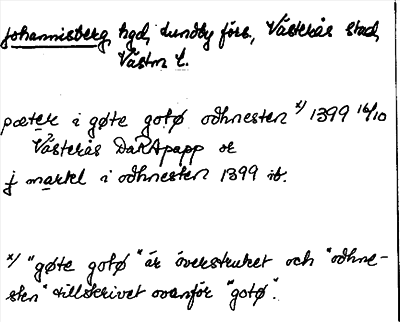 Johannisberg, hgd, Lundby förs., Västerås stad,
Västm l.
pæter i gøte gotø odhnesten x) 1399 16/10
Västerås DaRApapp or
j markel i odhnesten 1399 ib.
x) "gøte gotø" är överstruket och "odhne-
sten" tillskrivet ovanför "gotø".